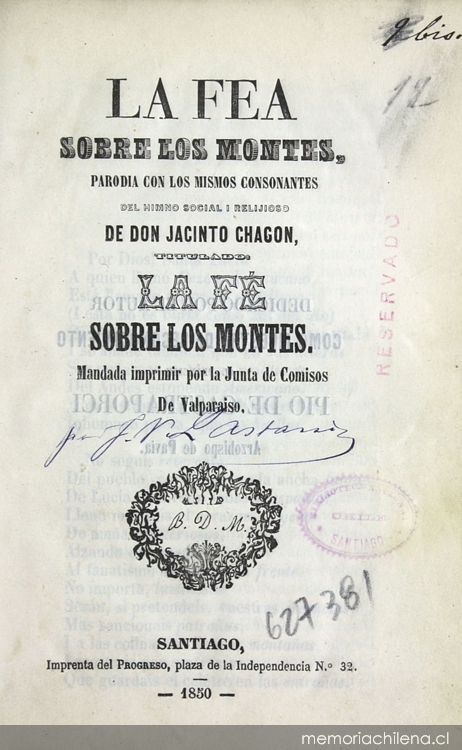 9 bis.
12
LA FEA
SOBRE LOS MONTES,
PARODIA CON LOS MISMOS CONSONANTES
DEL HIMNO SOCIAL I RELIJIOSO
DE DON JACINTO CHAGON,
TITULADO:
LA FÉ
SOBRE LOS MONTES.
Mandada imprimir por la Junta de Comisos
De Valparaiso.
por J. V. Lastarria
RESERVADO
B. D. M.
BIBLIOTECA
CHILE
SANTIAGO
627381
SANTIAGO,
Imprenta del PROGRESO, plaza de la Independencia N.º 32.
— 1850 —
memoriachilena.cl